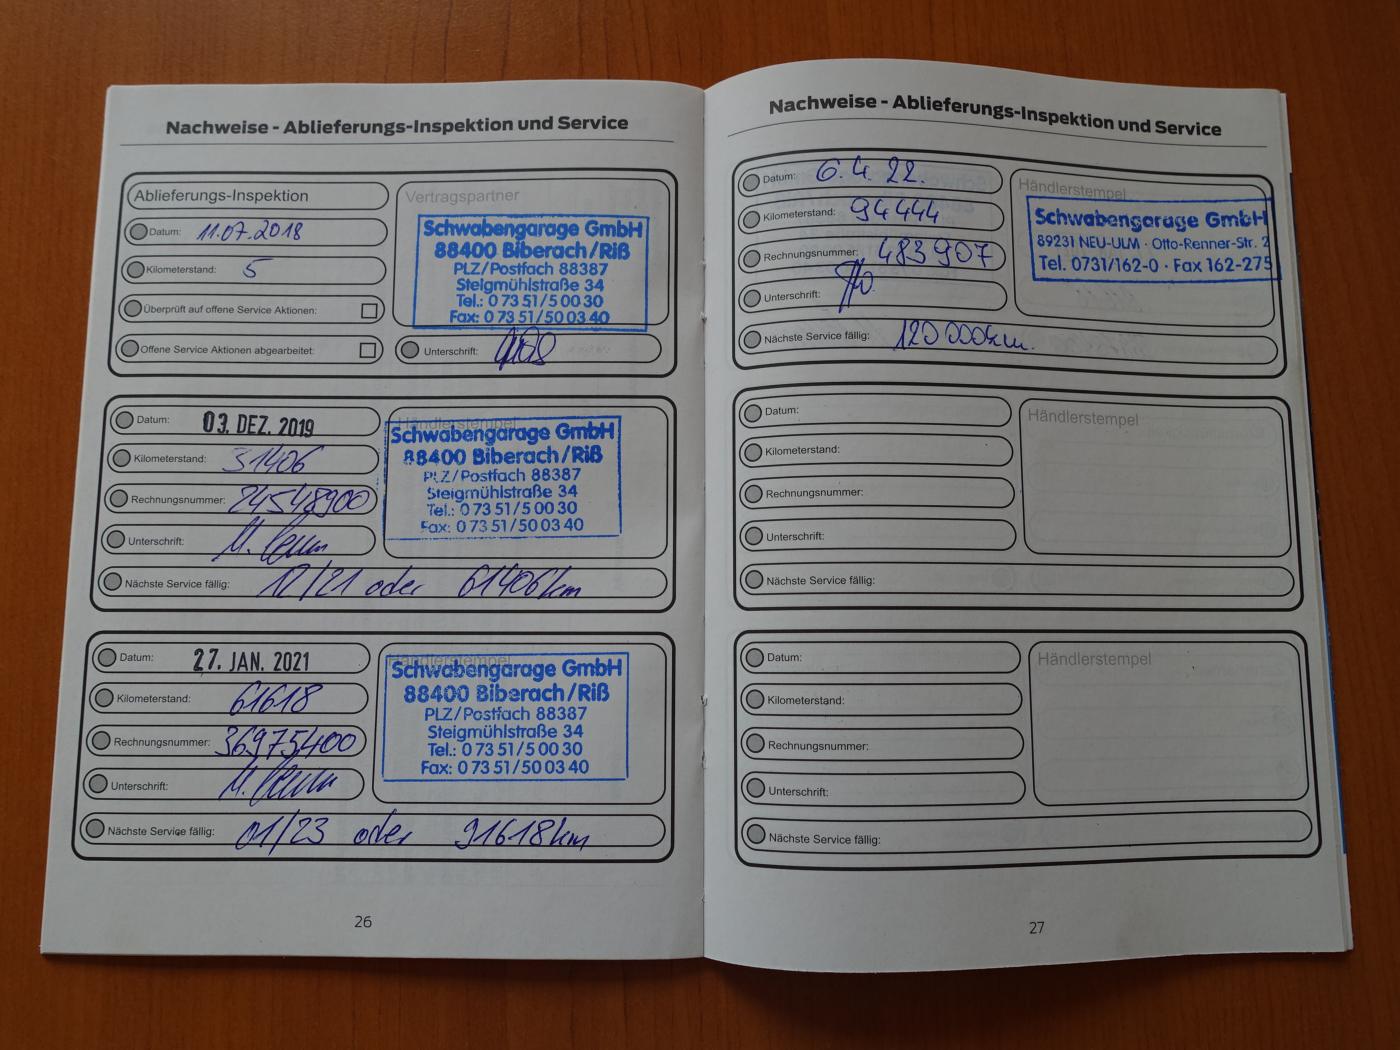 Nachweise - Ablieferungs-Inspektion und Service
Ablieferungs-Inspektion
Datum: 11.07.2018
Kilometerstand: 5
Überprüft auf offene Service Aktionen:
Offene Service Aktionen abgearbeitet:
Vertragspartner
Schwabengarage GmbH
88400 Biberach/Riß
PLZ/Postfach 88387
Steigmühlstraße 34
Tel.: 0 73 51/5 00 30
Fax: 0 73 51/50 03 40
Unterschrift:
Datum: 03. DEZ. 2019
Kilometerstand: 31406
Rechnungsnummer: 24548900
Unterschrift:
Händlerstempel
Schwabengarage GmbH
88400 Biberach/Riß
PLZ/Postfach 88387
Steigmühlstraße 34
Tel.: 0 73 51/5 00 30
Fax: 0 73 51/50 03 40
Nächste Service fällig: 12/21 oder 61406km
Datum: 27. JAN. 2021
Kilometerstand: 61618
Rechnungsnummer: 36975400
Unterschrift:
Händlerstempel
Schwabengarage GmbH
88400 Biberach/Riß
PLZ/Postfach 88387
Steigmühlstraße 34
Tel.: 0 73 51/5 00 30
Fax: 0 73 51/50 03 40
Nächste Service fällig: 01/23 oder 91618km
26
Nachweise - Ablieferungs-Inspektion und Service
Datum: 6.4.22.
Kilometerstand: 94444
Rechnungsnummer: 483907
Unterschrift:
Händlerstempel
Schwabengarage GmbH
89231 NEU-ULM · Otto-Renner-Str. 2
Tel. 0731/162-0 · Fax 162-275
Nächste Service fällig: 120 000km.
Datum:
Kilometerstand:
Rechnungsnummer:
Unterschrift:
Händlerstempel
Nächste Service fällig:
Datum:
Kilometerstand:
Rechnungsnummer:
Unterschrift:
Händlerstempel
Nächste Service fällig:
27